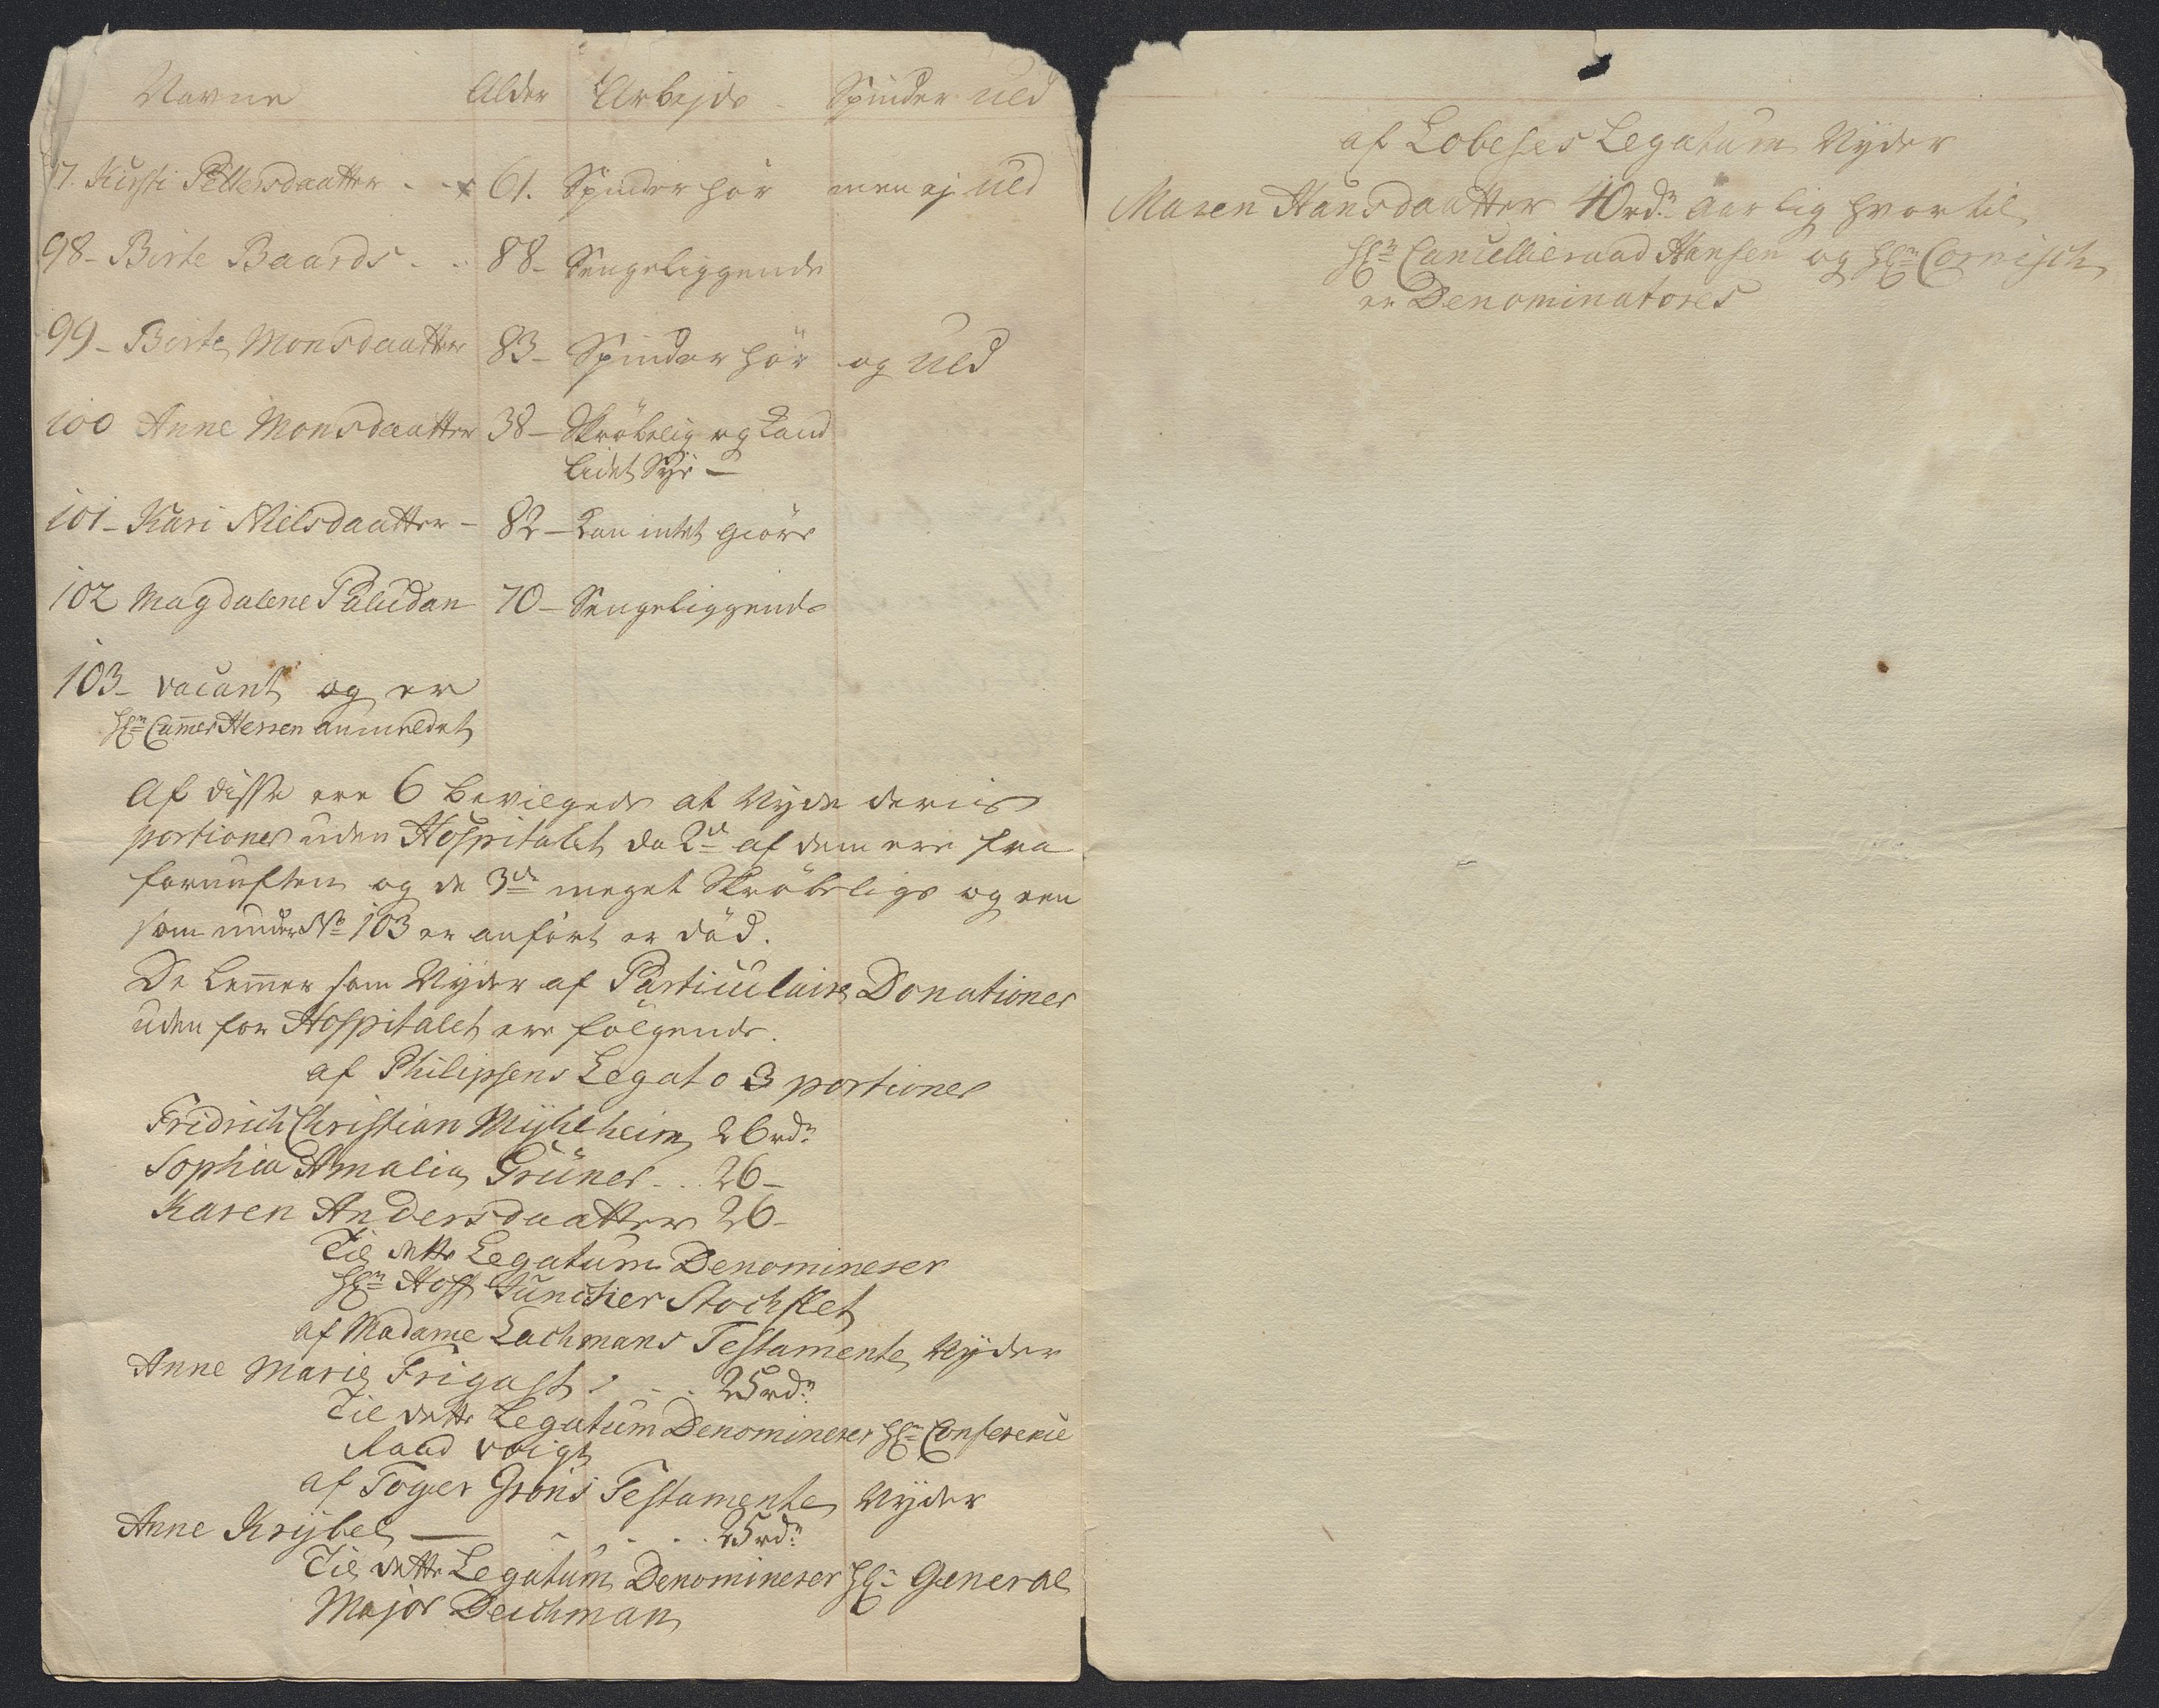 Navne Alder Arbejde - Spinder Uld
97. Kirsti Pettersdaatter - - 61. Spinder hør men ej Uld
98 - Birte Baards - - 88 - Sengeliggende
99 - Birte Monsdaatter 83 - Spinder hør og Uld
100 Anne Monsdaatter 38 - Skrøbelig og Kand
lidet Sye -
101 - Kari Nielsdaatter - 82 - Kan intet giøre
102 Magdalene Paludan 70 - Sengeliggende
103 - vacant og er
Hr: Cammer Hersen anmeldet
Af disse ere 6 bevilgede at Nyde deris
portioner uden Hospitalet da 2de af dem ere fra
fornuften og de 3de meget Skrøbelige og een
som under No 103 er anført er død.
De Lemmer som Nyder af Particulaire Donationer
uden for Hospitalet ere følgende.
af Philipsens Legato 3 portioner
Fridrich Christian Mÿhlheim 26 rdr
Sophia Amalia Grüner - . . 26 -
Karen Andersdaatter 26 -
Til dette Legatum Denominerer
Hr: Hoff Junckier Stochflet
af Madame Lachmans Testamente Nyder
Anne Marie Frigast - - . 25 rdr
Til dette Legatum Denominerer Hr: Conference
Raad Voigt
af Toger Gröns Testamente Nyder
Anne Krÿbel — - - . . 25 rdr
Til dette Legatum Denominerer Hr: General
Major Deichman
af Lobeses Legatum Nyder
Maren Hansdaatter 40 rdr aarlig hvortil
Hr: Cancellieraad Hansen og Hr: Cornisch
er Denominatores